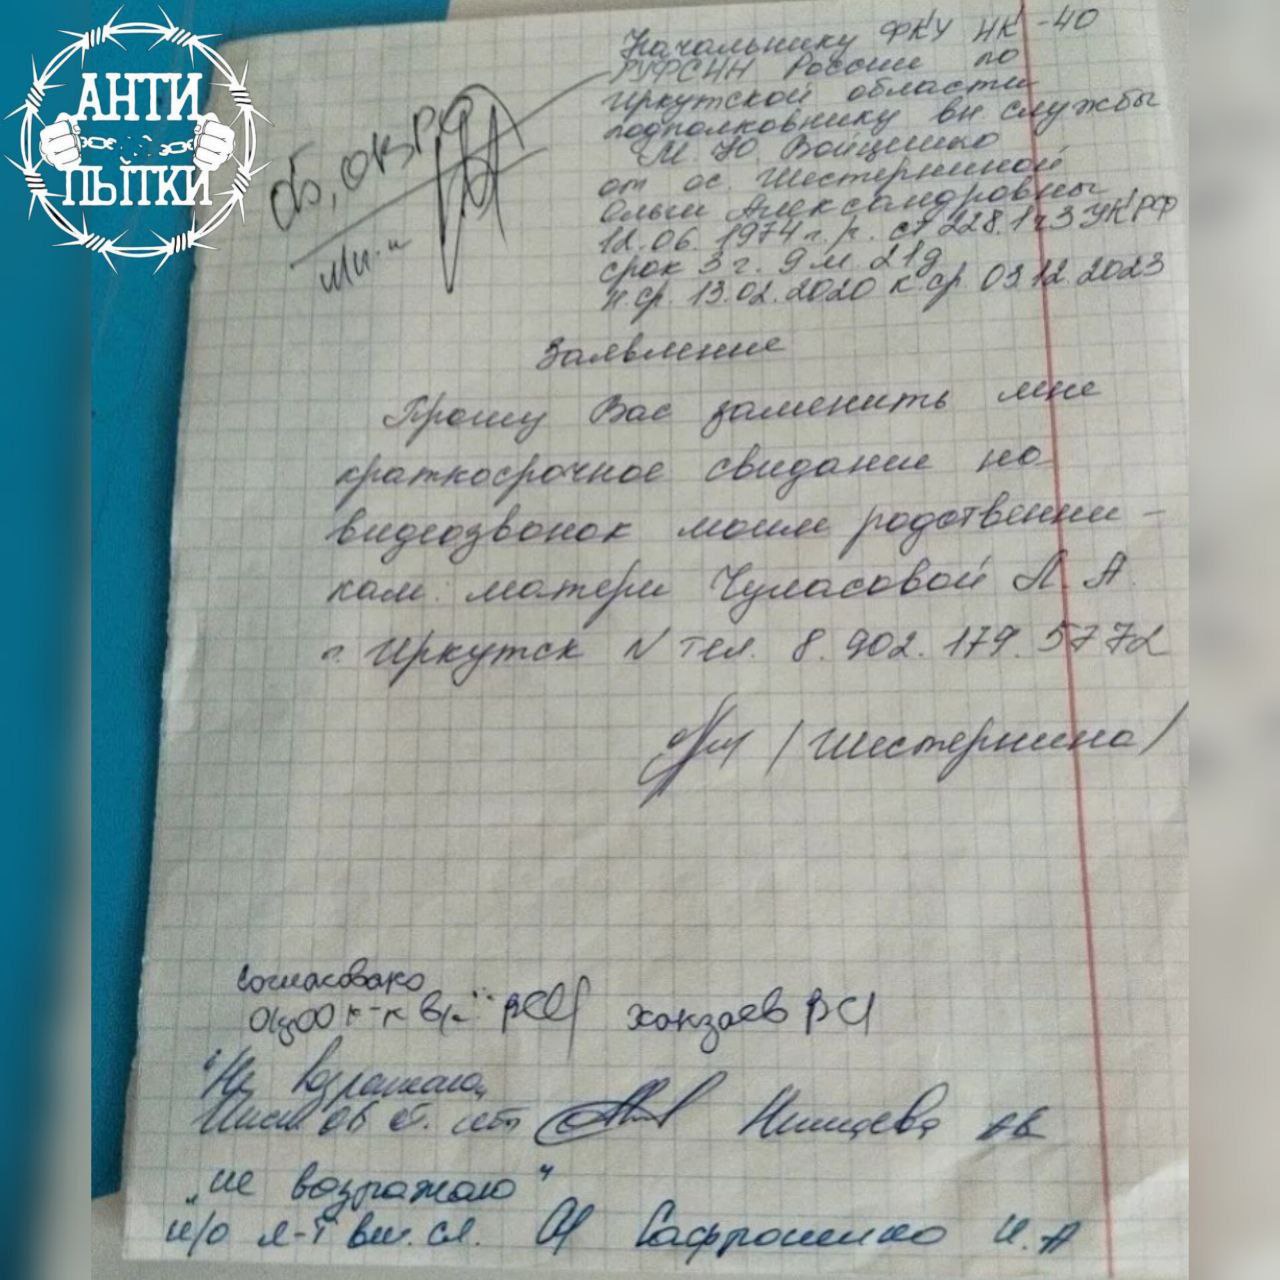 АНТИ
ПЫТКИ
Начальнику ФКУ ИК-40
ГУФСИН России по
Иркутской области
подполковнику вн службы
М. Ю. Войцешко
от ос Шестерниной
Ольги Александровны
12.06. 1974 г.р. ст 228.1 ч 3 УК РФ
срок 3 г. 9 м. 21 д
н.ср. 13.02.2020 к.ср. 03.12.2023
об, ОВРО
Заявление
Прошу Вас заменить мне
краткосрочное свидание на
видеозвонок моим родственни-
кам: матери Чуласовой Л. А.
г. Иркутск N тел. 8. 902. 179. 57 72
/ Шестернина /
Согласовано
к-н в/с Ханзаев
"Не возражаю"
Нищева АВ
"не возражаю"
и/о л-т вн. сл. Сафроненко И. А